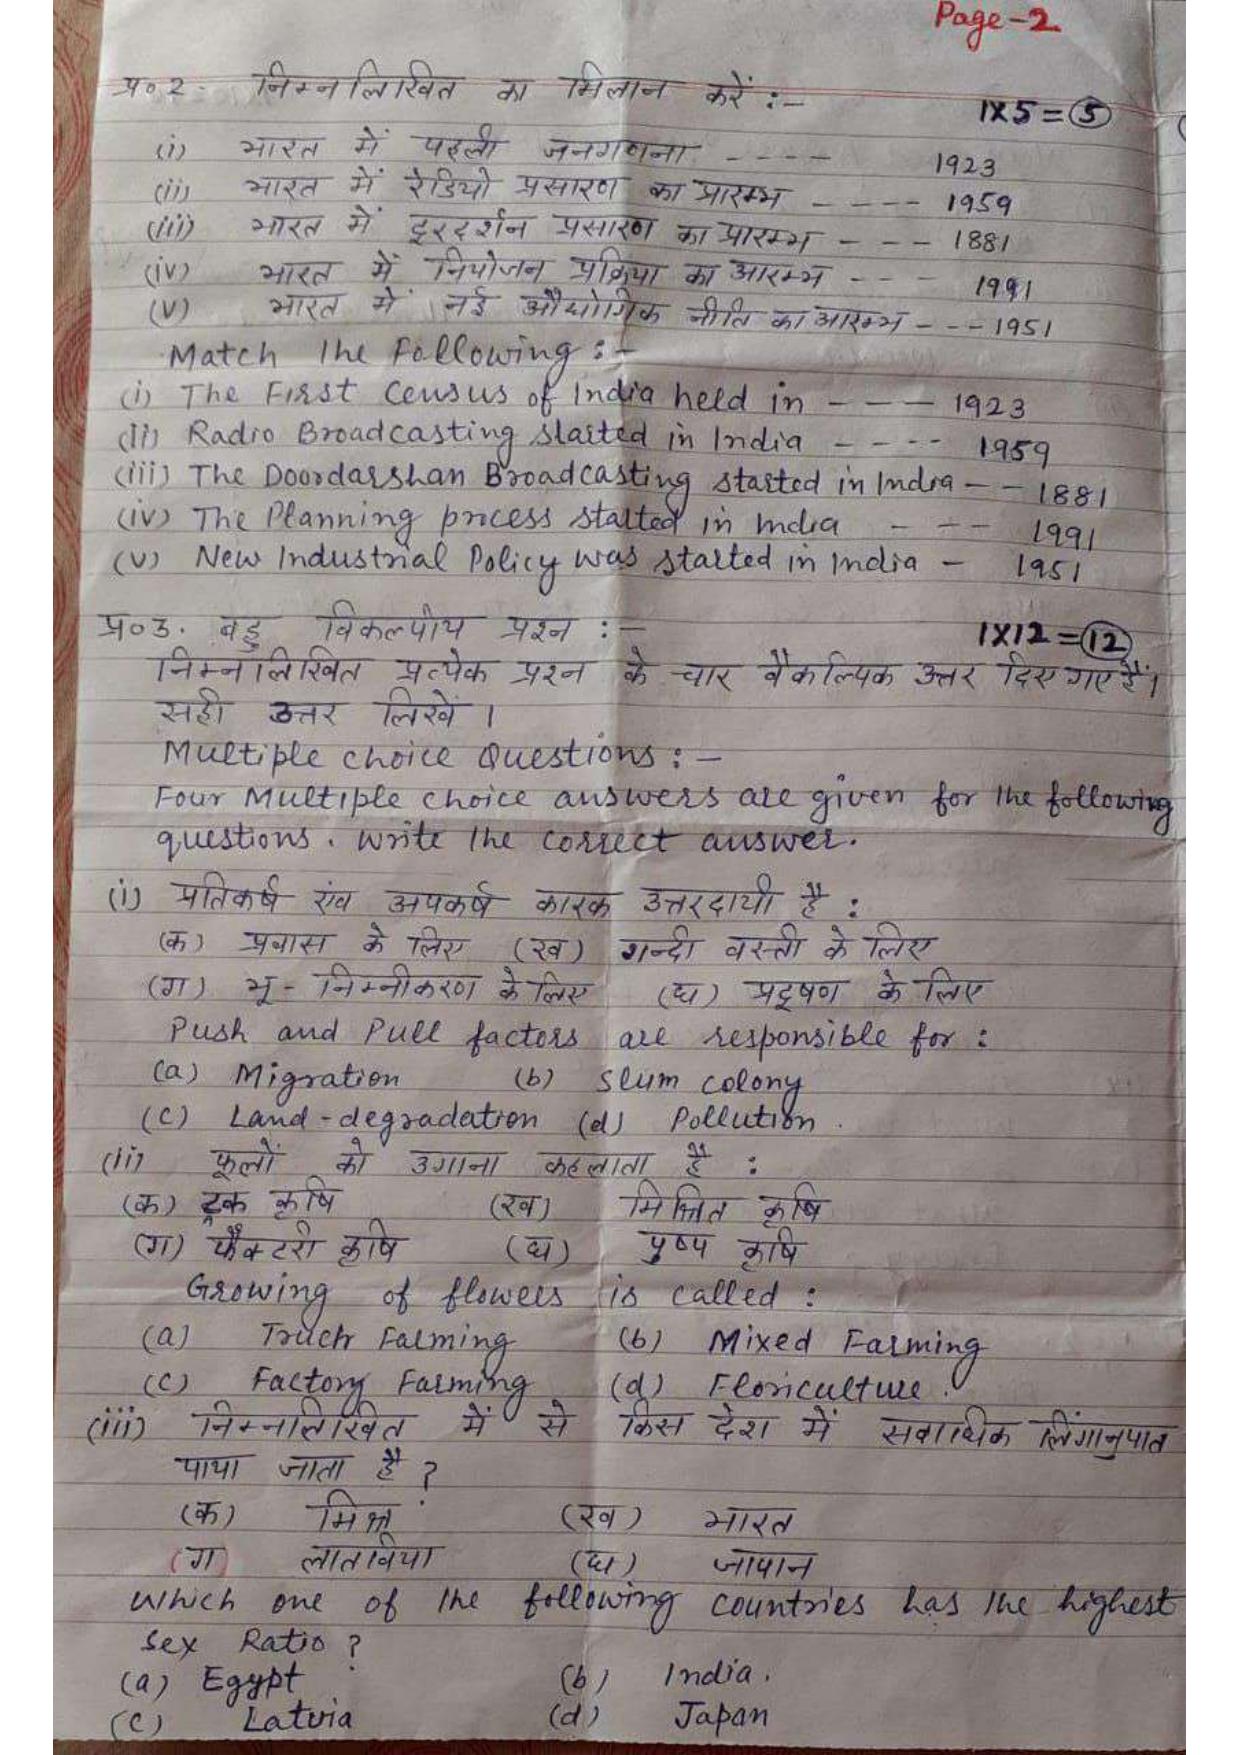 Page-2
प्र०2. निम्नलिखित का मिलान करें :-
1x5=5
(i) भारत में पहली जनगणना ---- 1923
(ii) भारत में रेडियो प्रसारण का प्रारम्भ ---- 1959
(iii) भारत में दूरदर्शन प्रसारण का प्रारम्भ --- 1881
(iv) भारत में नियोजन प्रक्रिया का आरम्भ --- 1991
(v) भारत में नई औद्योगिक नीति का आरम्भ --- 1951
Match the Following :-
(i) The First Census of India held in --- 1923
(ii) Radio Broadcasting started in India ---- 1959
(iii) The Doordarshan Broadcasting started in India -- 1881
(iv) The Planning process started in India --- 1991
(v) New Industrial Policy was started in India - 1951
प्र०3. बहु विकल्पीय प्रश्न :-
1x12=12
निम्नलिखित प्रत्येक प्रश्न के चार वैकल्पिक उत्तर दिए गए हैं।
सही उत्तर लिखें ।
Multiple choice Questions :-
Four Multiple choice answers are given for the following
questions. Write the correct answer.
(i) प्रतिकर्ष एंव अपकर्ष कारक उत्तरदायी है :
(क) प्रवास के लिए (ख) गन्दी वस्ती के लिए
(ग) भू-निम्नीकरण के लिए (घ) प्रदूषण के लिए
Push and Pull factors are responsible for :
(a) Migration (b) Slum colony
(c) Land-degradation (d) Pollution.
(ii) फूलों को उगाना कहलाता है :
(क) ट्रक कृषि (ख) मिश्रित कृषि
(ग) फैक्टरी कृषि (घ) पुष्प कृषि
Growing of flowers is called :
(a) Truch Farming (b) Mixed Farming
(c) Factory Farming (d) Floriculture.
(iii) निम्नलिखित में से किस देश में सर्वाधिक लिंगानुपात
पाया जाता है ?
(क) मिस्र (ख) भारत
(ग) लातविया (घ) जापान
Which one of the following countries has the highest
Sex Ratio ?
(a) Egypt (b) India.
(c) Latvia (d) Japan